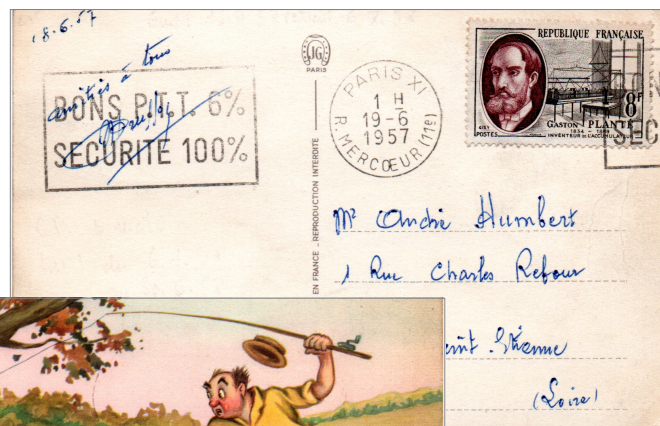 18.6.57
amitiés à tous
BONS P.T.T. 6%
SECURITÉ 100%
JG
PARIS
EN FRANCE _ REPRODUCTION INTERDITE
PARIS XI
1 H
19-6
1957
R. MERCŒUR (11e)
REPUBLIQUE FRANÇAISE
8F
GASTON PLANTÉ
1834 - 1889
INVENTEUR DE L'ACCUMULATEUR
POSTES
SEC
Mr André Humbert
1 Rue Charles Rebour
aint-Etienne
(Loire)